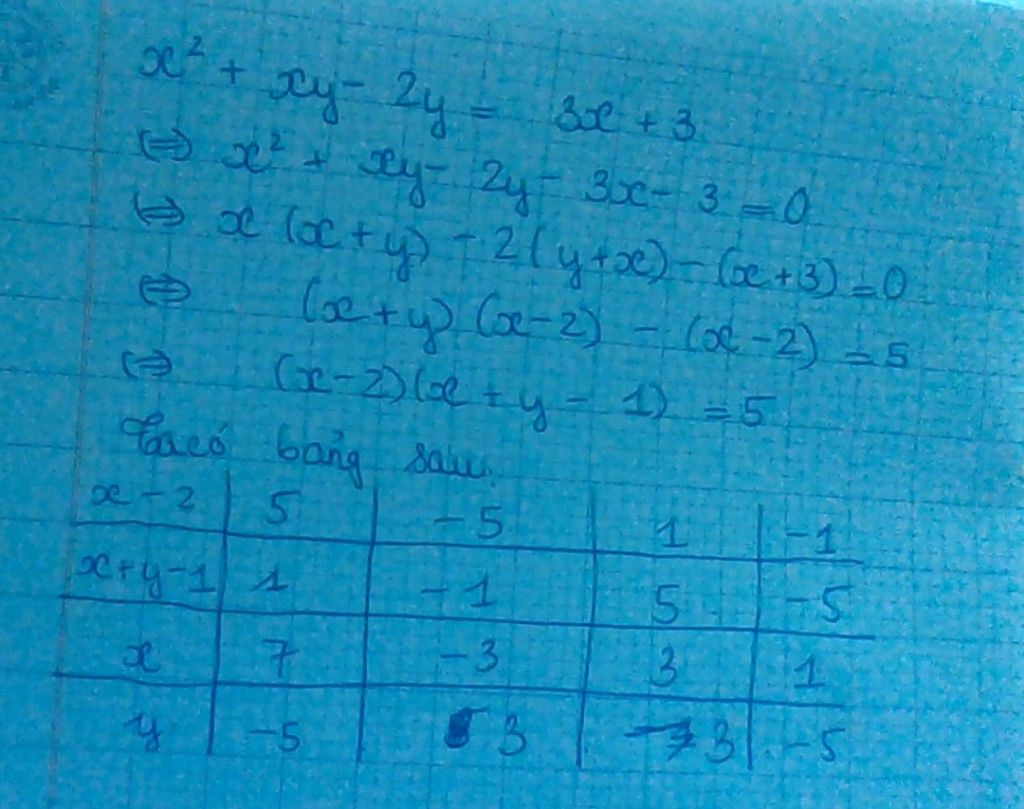 x² + xy - 2y = 3x + 3
⇔ x² + xy - 2y - 3x - 3 = 0
⇔ x (x + y) - 2 (y + x) - (x + 3) = 0
⇔ (x + y) (x - 2) - (x - 2) = 5
⇔ (x - 2) (x + y - 1) = 5
Ta có bảng sau.
x - 2 | 5 | -5 | 1 | -1
x + y - 1 | 1 | -1 | 5 | -5
x | 7 | -3 | 3 | 1
y | -5 | 3 | 3 | -5